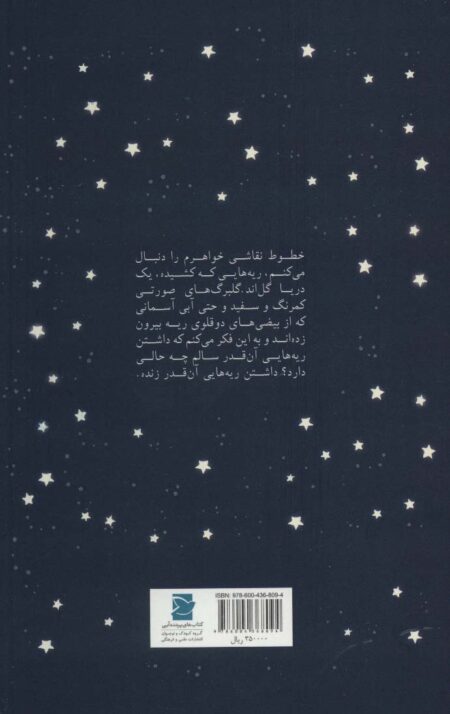 خطوط نقاشی خواهرم را دنبال
می‌کنم، ریه‌هایی که کشیده، یک
دریا گل‌اند. گلبرگ‌های صورتی
کمرنگ و سفید و حتی آبی آسمانی
که از بیضی‌های دوقلوی ریه بیرون
زده‌اند و به این فکر می‌کنم که داشتن
ریه‌هایی آن‌قدر سالم چه حالی
دارد؟ داشتن ریه‌هایی آن‌قدر زنده.
ISBN: 978-600-436-809-4
کتاب‌های پرنده آبی
گروه کودک و نوجوان
انتشارات علمی و فرهنگی
۳۵۰۰۰۰ ریال